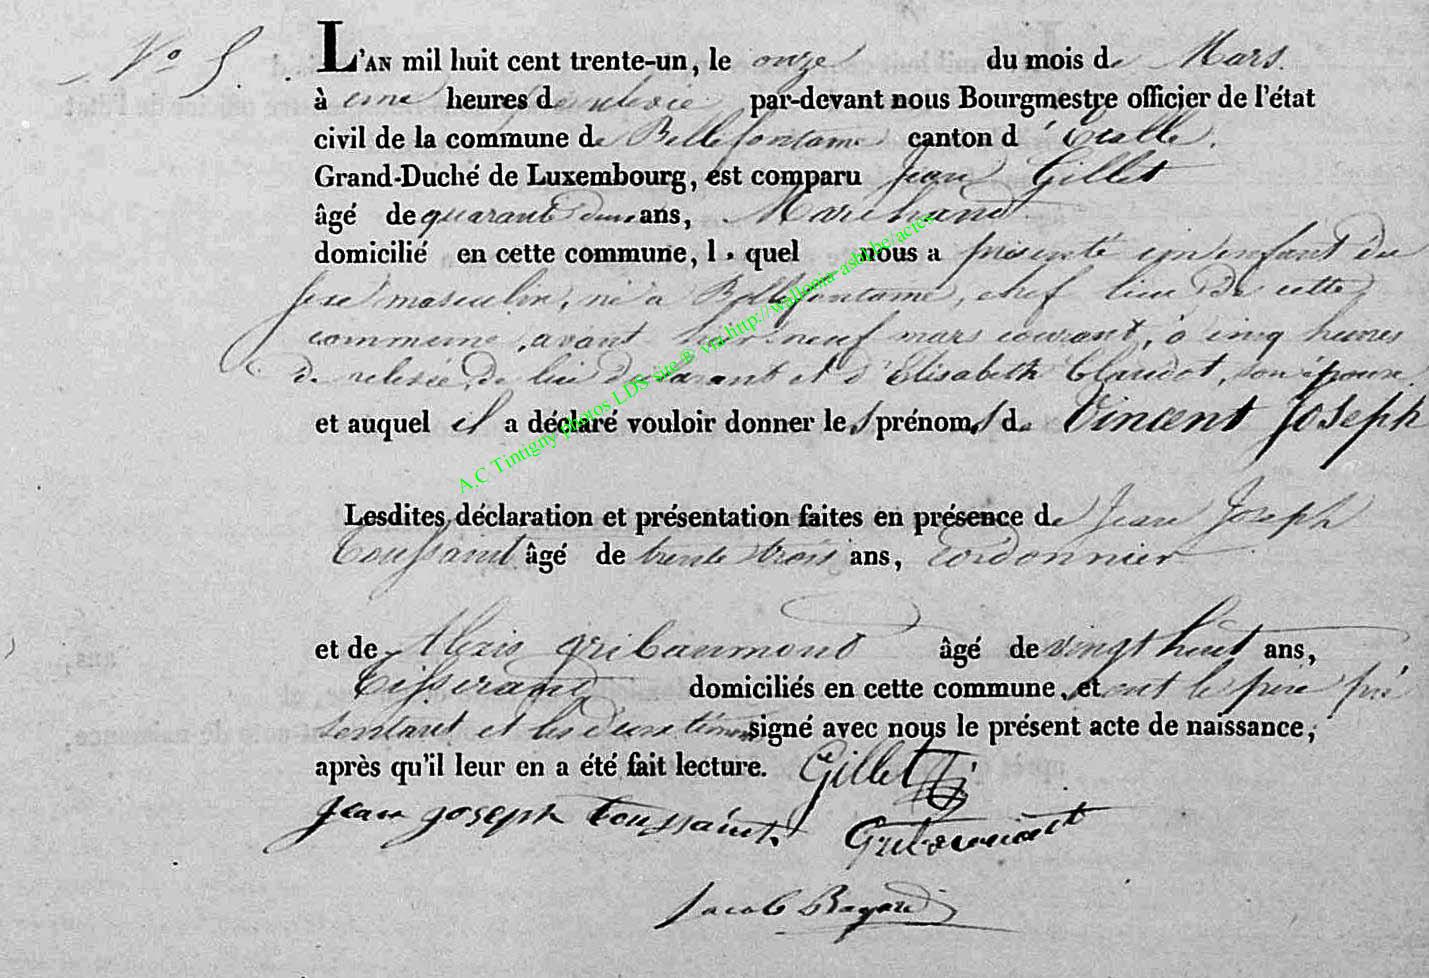 N° 5.
L'AN mil huit cent trente-un, le onze du mois de Mars.
à une heures de relevée par-devant nous Bourgmestre officier de l'état
civil de la commune de Bellefontaine canton d'Etalle.
Grand-Duché de Luxembourg, est comparu Jean Gillet
âgé de quarante deux ans, Marchand
domicilié en cette commune, l quel nous a présenté un enfant du
sexe masculin, né à Bellefontaine, chef lieu de cette
commune, avant hier neuf mars courant, à cinq heures
de relevée, de lui déclarant et d'Elisabeth Claudot, son épouse.
et auquel il a déclaré vouloir donner les prénoms de Vincent Joseph
Lesdites déclaration et présentation faites en présence de Jean Joseph
Toussaint âgé de trente trois ans, cordonnier
et de Alexis Gribaumont âgé de vingt huit ans,
Tisserand domiciliés en cette commune, et ont le père pré
sentant et les deux témoins signé avec nous le présent acte de naissance,
après qu'il leur en a été fait lecture. Gillet
Jean Joseph Toussaint Gribaumont
Jacob Bayard
A.C Tintigny photos LDS site ® via http://wallonia-asbl.be/actes